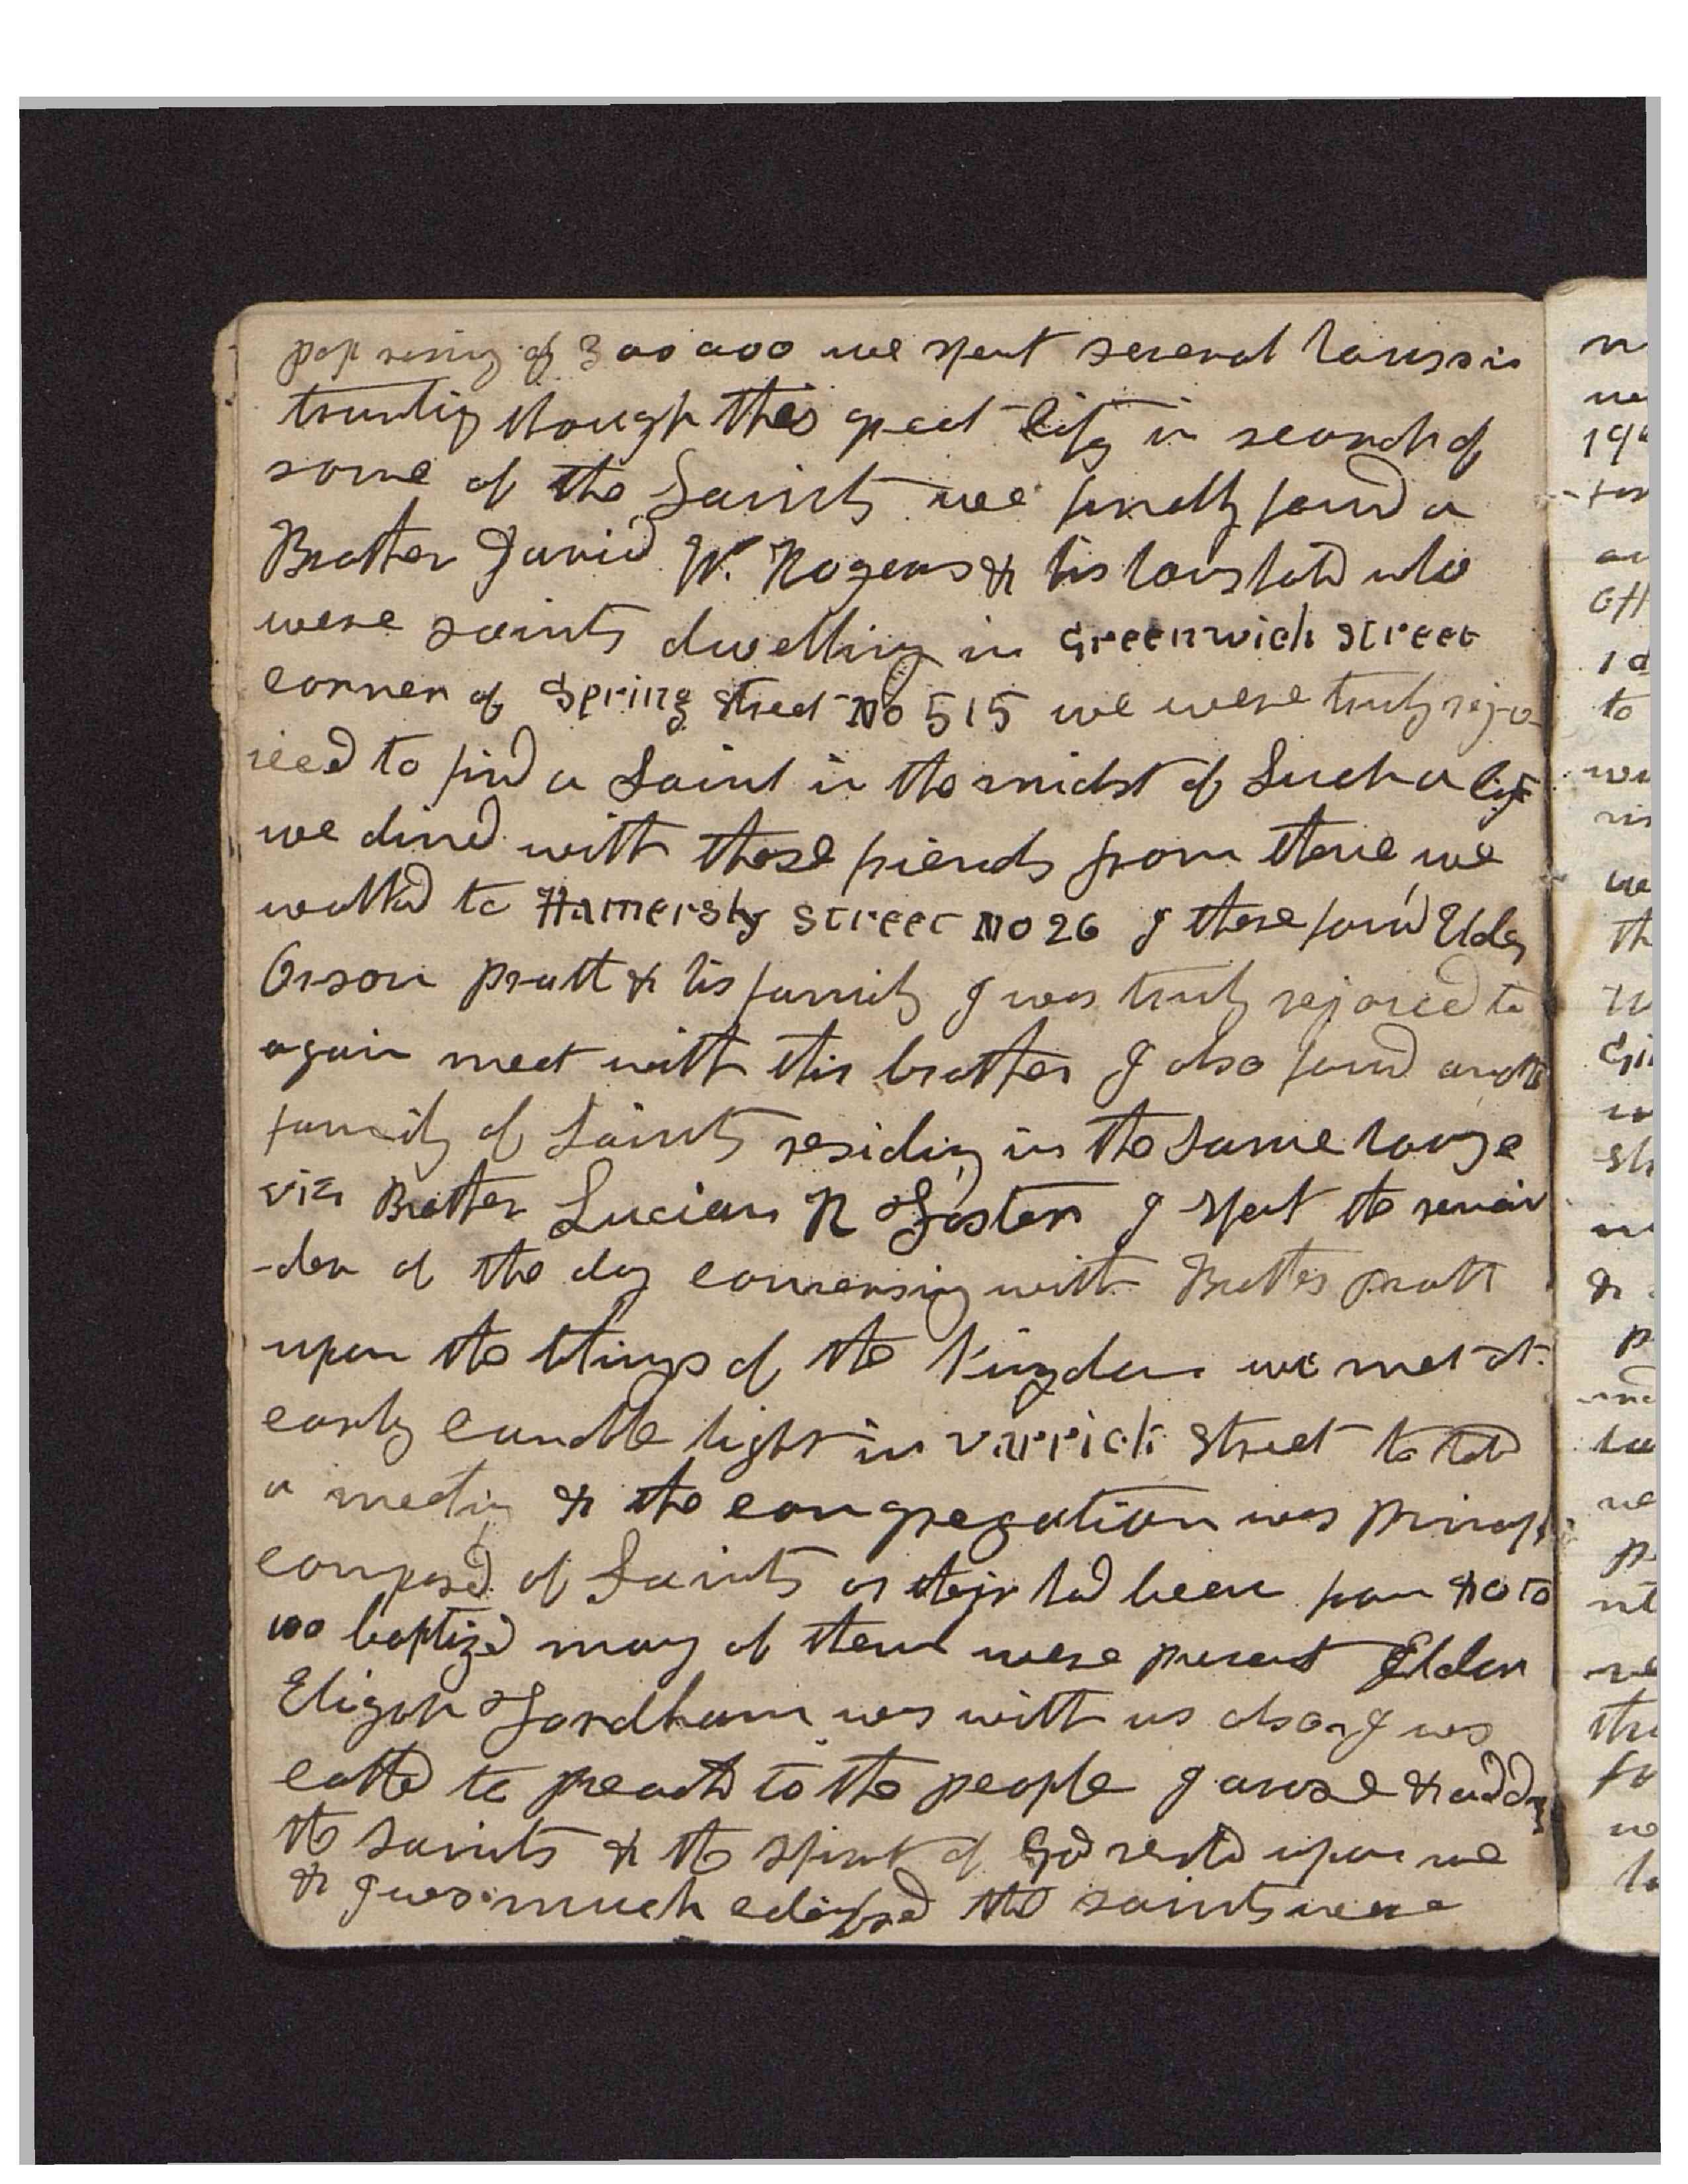 pop rising of 300000 we spent several hours in
trunting through this great City in search of
some of the Saints we finally found a
Brother David W. Rogers & his houshold who
were saints dwelling in Greenwich Street
corner of Spring street No 515 we were truly rejo
iced to find a Saint in the midst of Such a City
we dined with these friends from thence we
walked to Hamersly Street No 26 I there found Elder
Orson Pratt & his family I was truly rejoiced to
again meet with this brother I also found another
family of Saints residing in the same house
viz Brother Lucian R Foster I spent the remain
-der of the day conversing with Brother Pratt
upon the things of the kingdom we met at
early candle light in Varrick Street to hold
a meeting & the congregation was princip
composed of Saints as their had been from 80 to
100 baptized many of them were present Elder
Elizah Fordham was with us also I was
called to preach to the people I arose & addr
the saints & the spirit of God rested upon me
& I was much edifyed the saints were